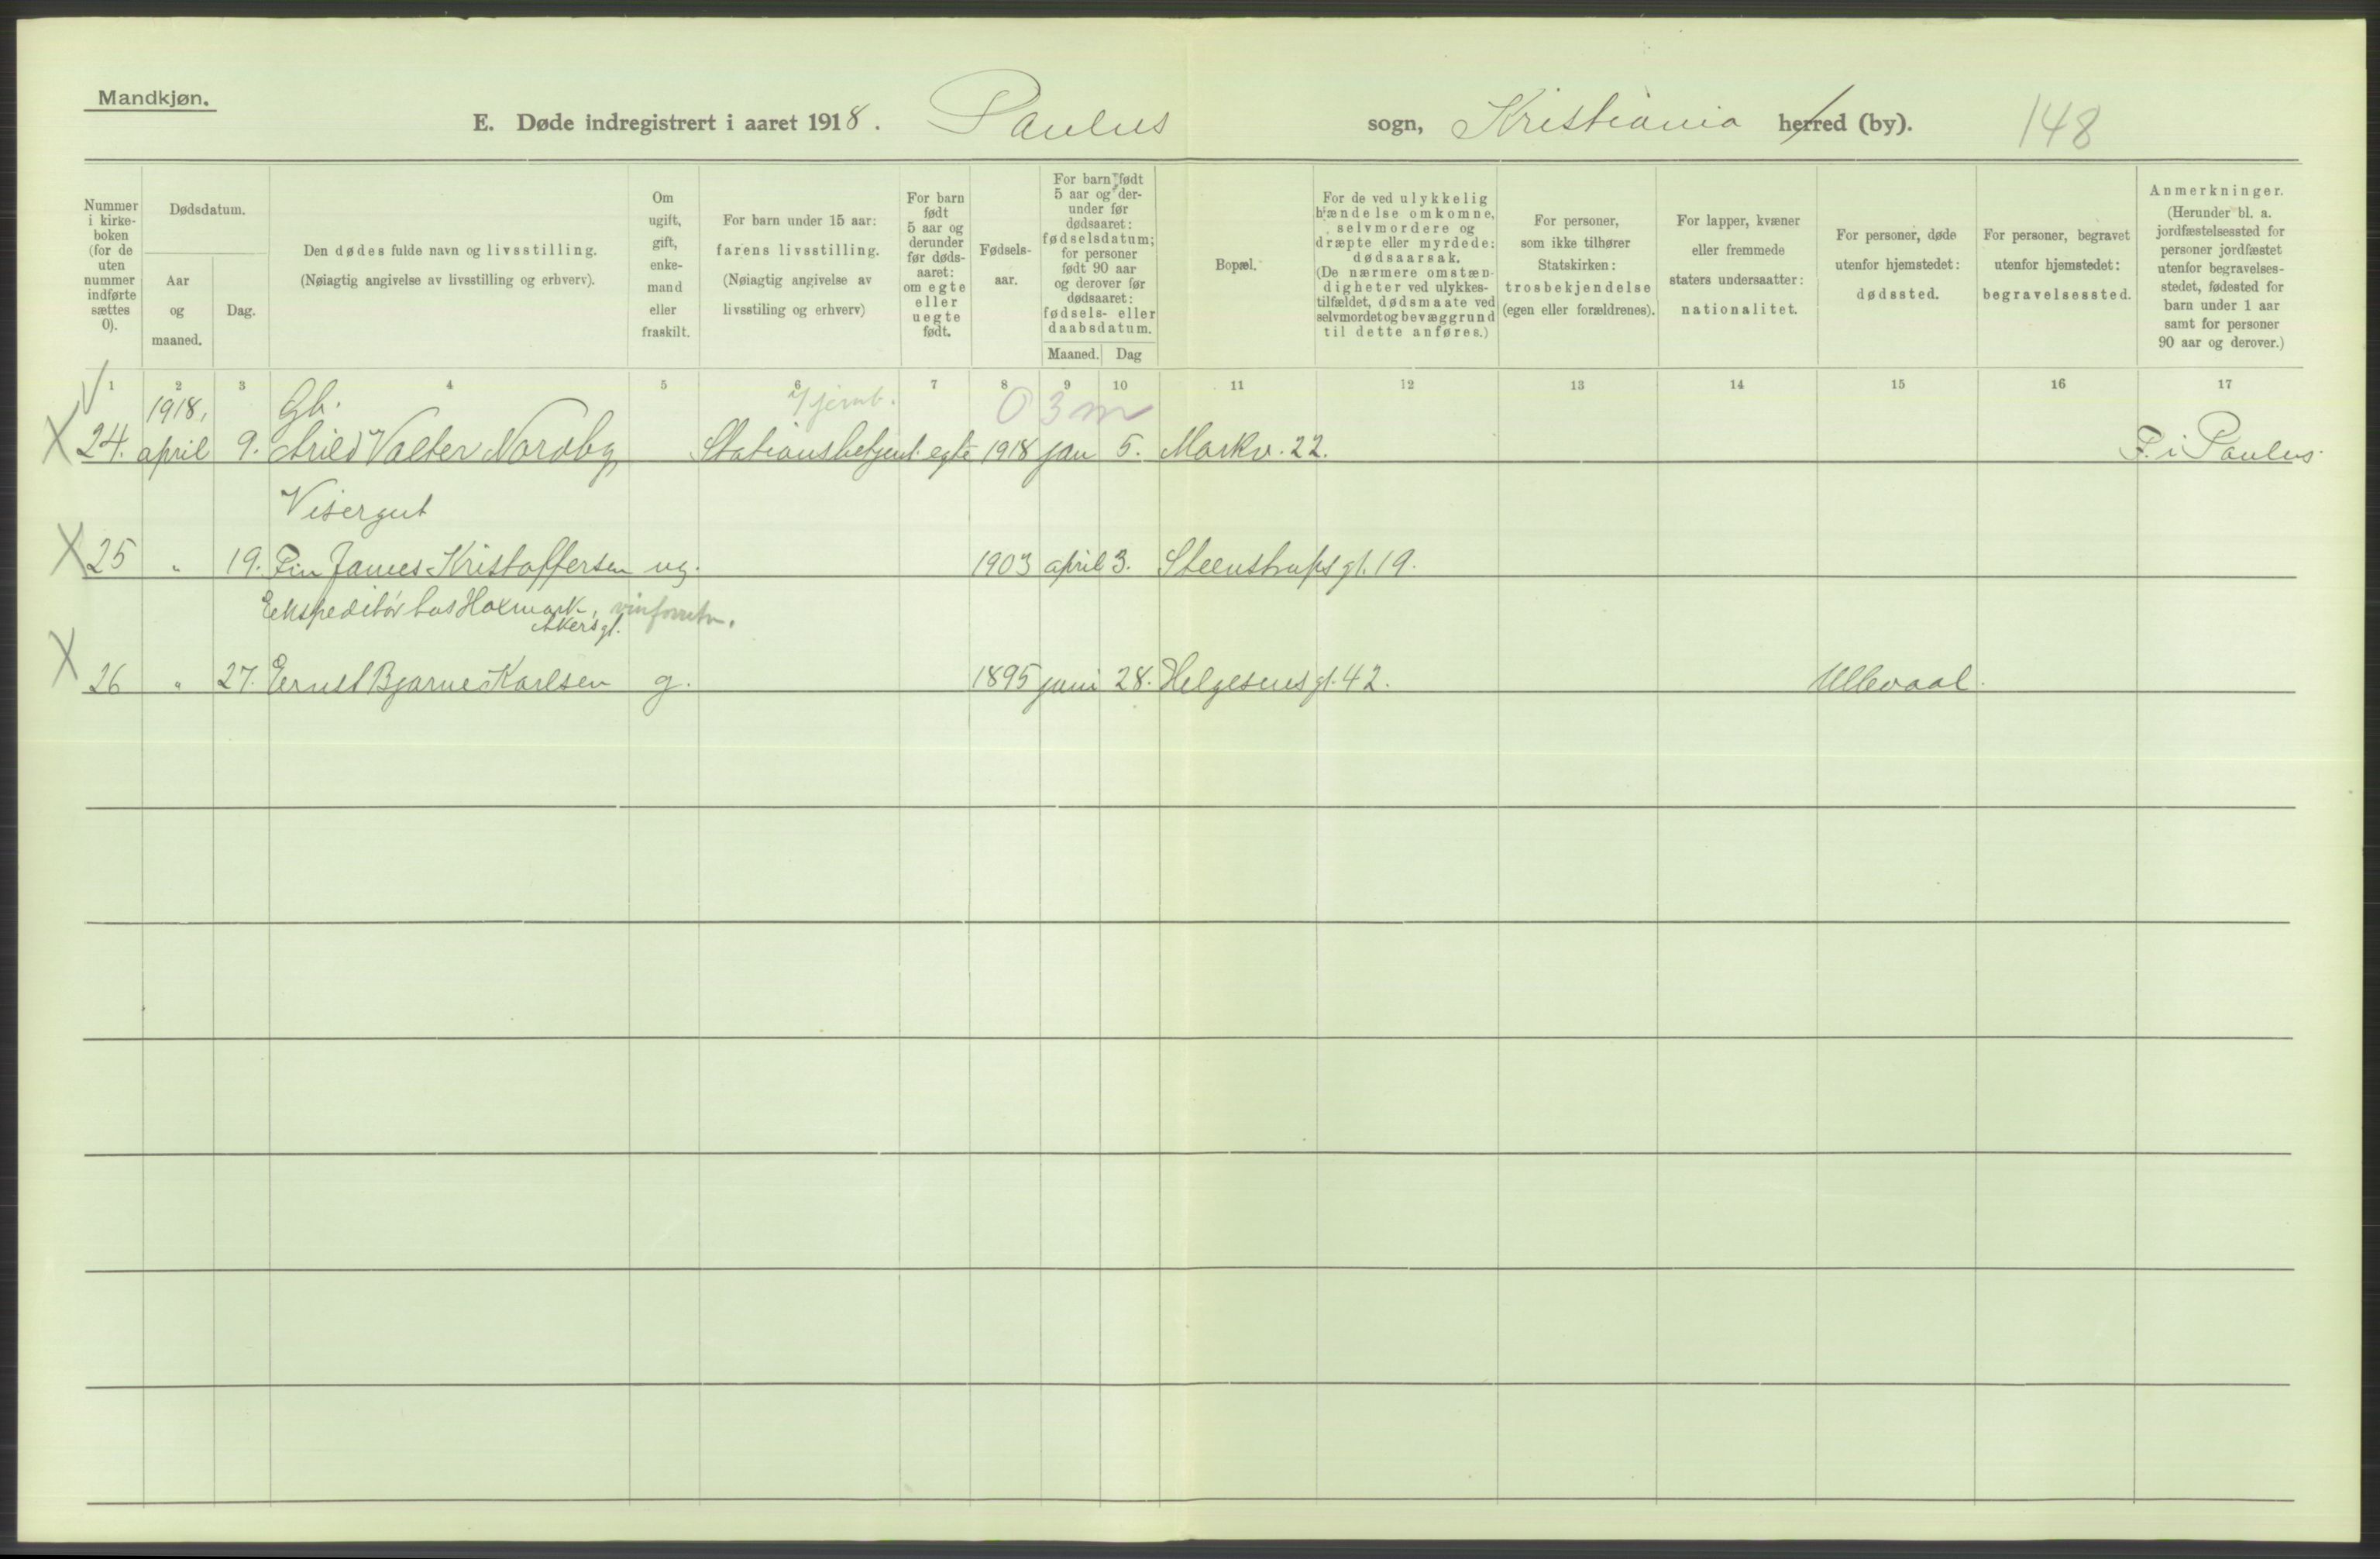 Mandkjøn.
E. Døde indregistrert i aaret 1918. Paulus sogn, Kristiania herred (by). 148
Nummer i kirke-boken (for de uten nummer indførte sættes 0).
Dødsdatum.
Aar og maaned.
Dag.
Den dødes fulde navn og livsstilling.
(Nøiagtig angivelse av livsstilling og erhverv).
Om ugift, gift, enke-mand eller fraskilt.
For barn under 15 aar:
farens livsstilling.
(Nøiagtig angivelse av
livsstiling og erhverv)
For barn født 5 aar og derunder før døds-aaret: om egte eller uegte født.
Fødsels-aar.
For barn født 5 aar og der-under før dødsaaret: fødselsdatum; for personer født 90 aar og derover før dødsaaret: fødsels- eller daabsdatum.
Maaned. Dag
Bopæl.
For de ved ulykkelig hændelse omkomne, selvmordere og dræpte eller myrdede: dødsaarsak. (De nærmere omstæn-digheter ved ulykkes-tilfældet, dødsmaate ved selvmordet og bevæggrund til dette anføres.)
For personer, som ikke tilhører Statskirken: trosbekjendelse (egen eller forældrenes).
For lapper, kvæner eller fremmede staters undersaatter: nationalitet.
For personer, døde utenfor hjemstedet: dødssted.
For personer, begravet utenfor hjemstedet: begravelsessted.
Anmerkninger.
(Herunder bl. a. jordfæstelsessted for personer jordfæstet utenfor begravelses-stedet, fødested for barn under 1 aar samt for personer 90 aar og derover.)
1 2 3 4 5 6 7 8 9 10 11 12 13 14 15 16 17
1918, Gb. 0 3 m
24. april 9. Arild Valter Nordby Stationsbetjent egte 1918 jan 5. Markv. 22. F. i Paulus.
Visergut
25 " 19. Fin James Kristoffersen ug. 1903 april 3. Steenstrups gt. 19.
Ekspeditør hos Hoxmark, vinforretn.
Akersgt.
26 " 27. Ernst Bjarne Karlsen g. 1895 juni 28. Helgesens gt. 42. Ullevaal.